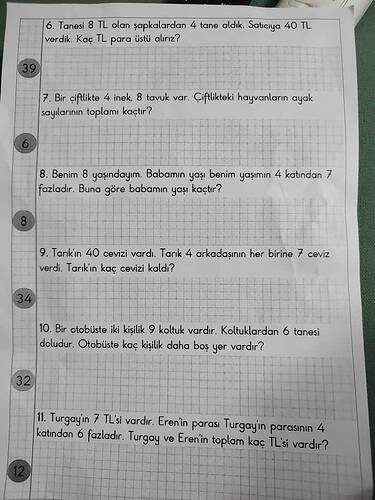 6. Tanesi 8 TL olan şapkalardan 4 tane aldık. Satıcıya 40 TL
verdik. Kaç TL para üstü alırız?
39
7. Bir çiftlikte 4 inek, 8 tavuk var. Çiftlikteki hayvanların ayak
sayılarının toplamı kaçtır?
6
8. Benim 8 yaşındayım. Babamın yaşı benim yaşımın 4 katından 7
fazladır. Buna göre babamın yaşı kaçtır?
8
9. Tarık'ın 40 cevizi vardı. Tarık 4 arkadaşının her birine 7 ceviz
verdi. Tarık'ın kaç cevizi kaldı?
34
10. Bir otobüste iki kişilik 9 koltuk vardır. Koltuklardan 6 tanesi
doludur. Otobüste kaç kişilik daha boş yer vardır?
32
11. Turgay'ın 7 TL'si vardır. Eren'in parası Turgay'ın parasının 4
katından 6 fazladır. Turgay ve Eren'in toplam kaç TL'si vardır?
12